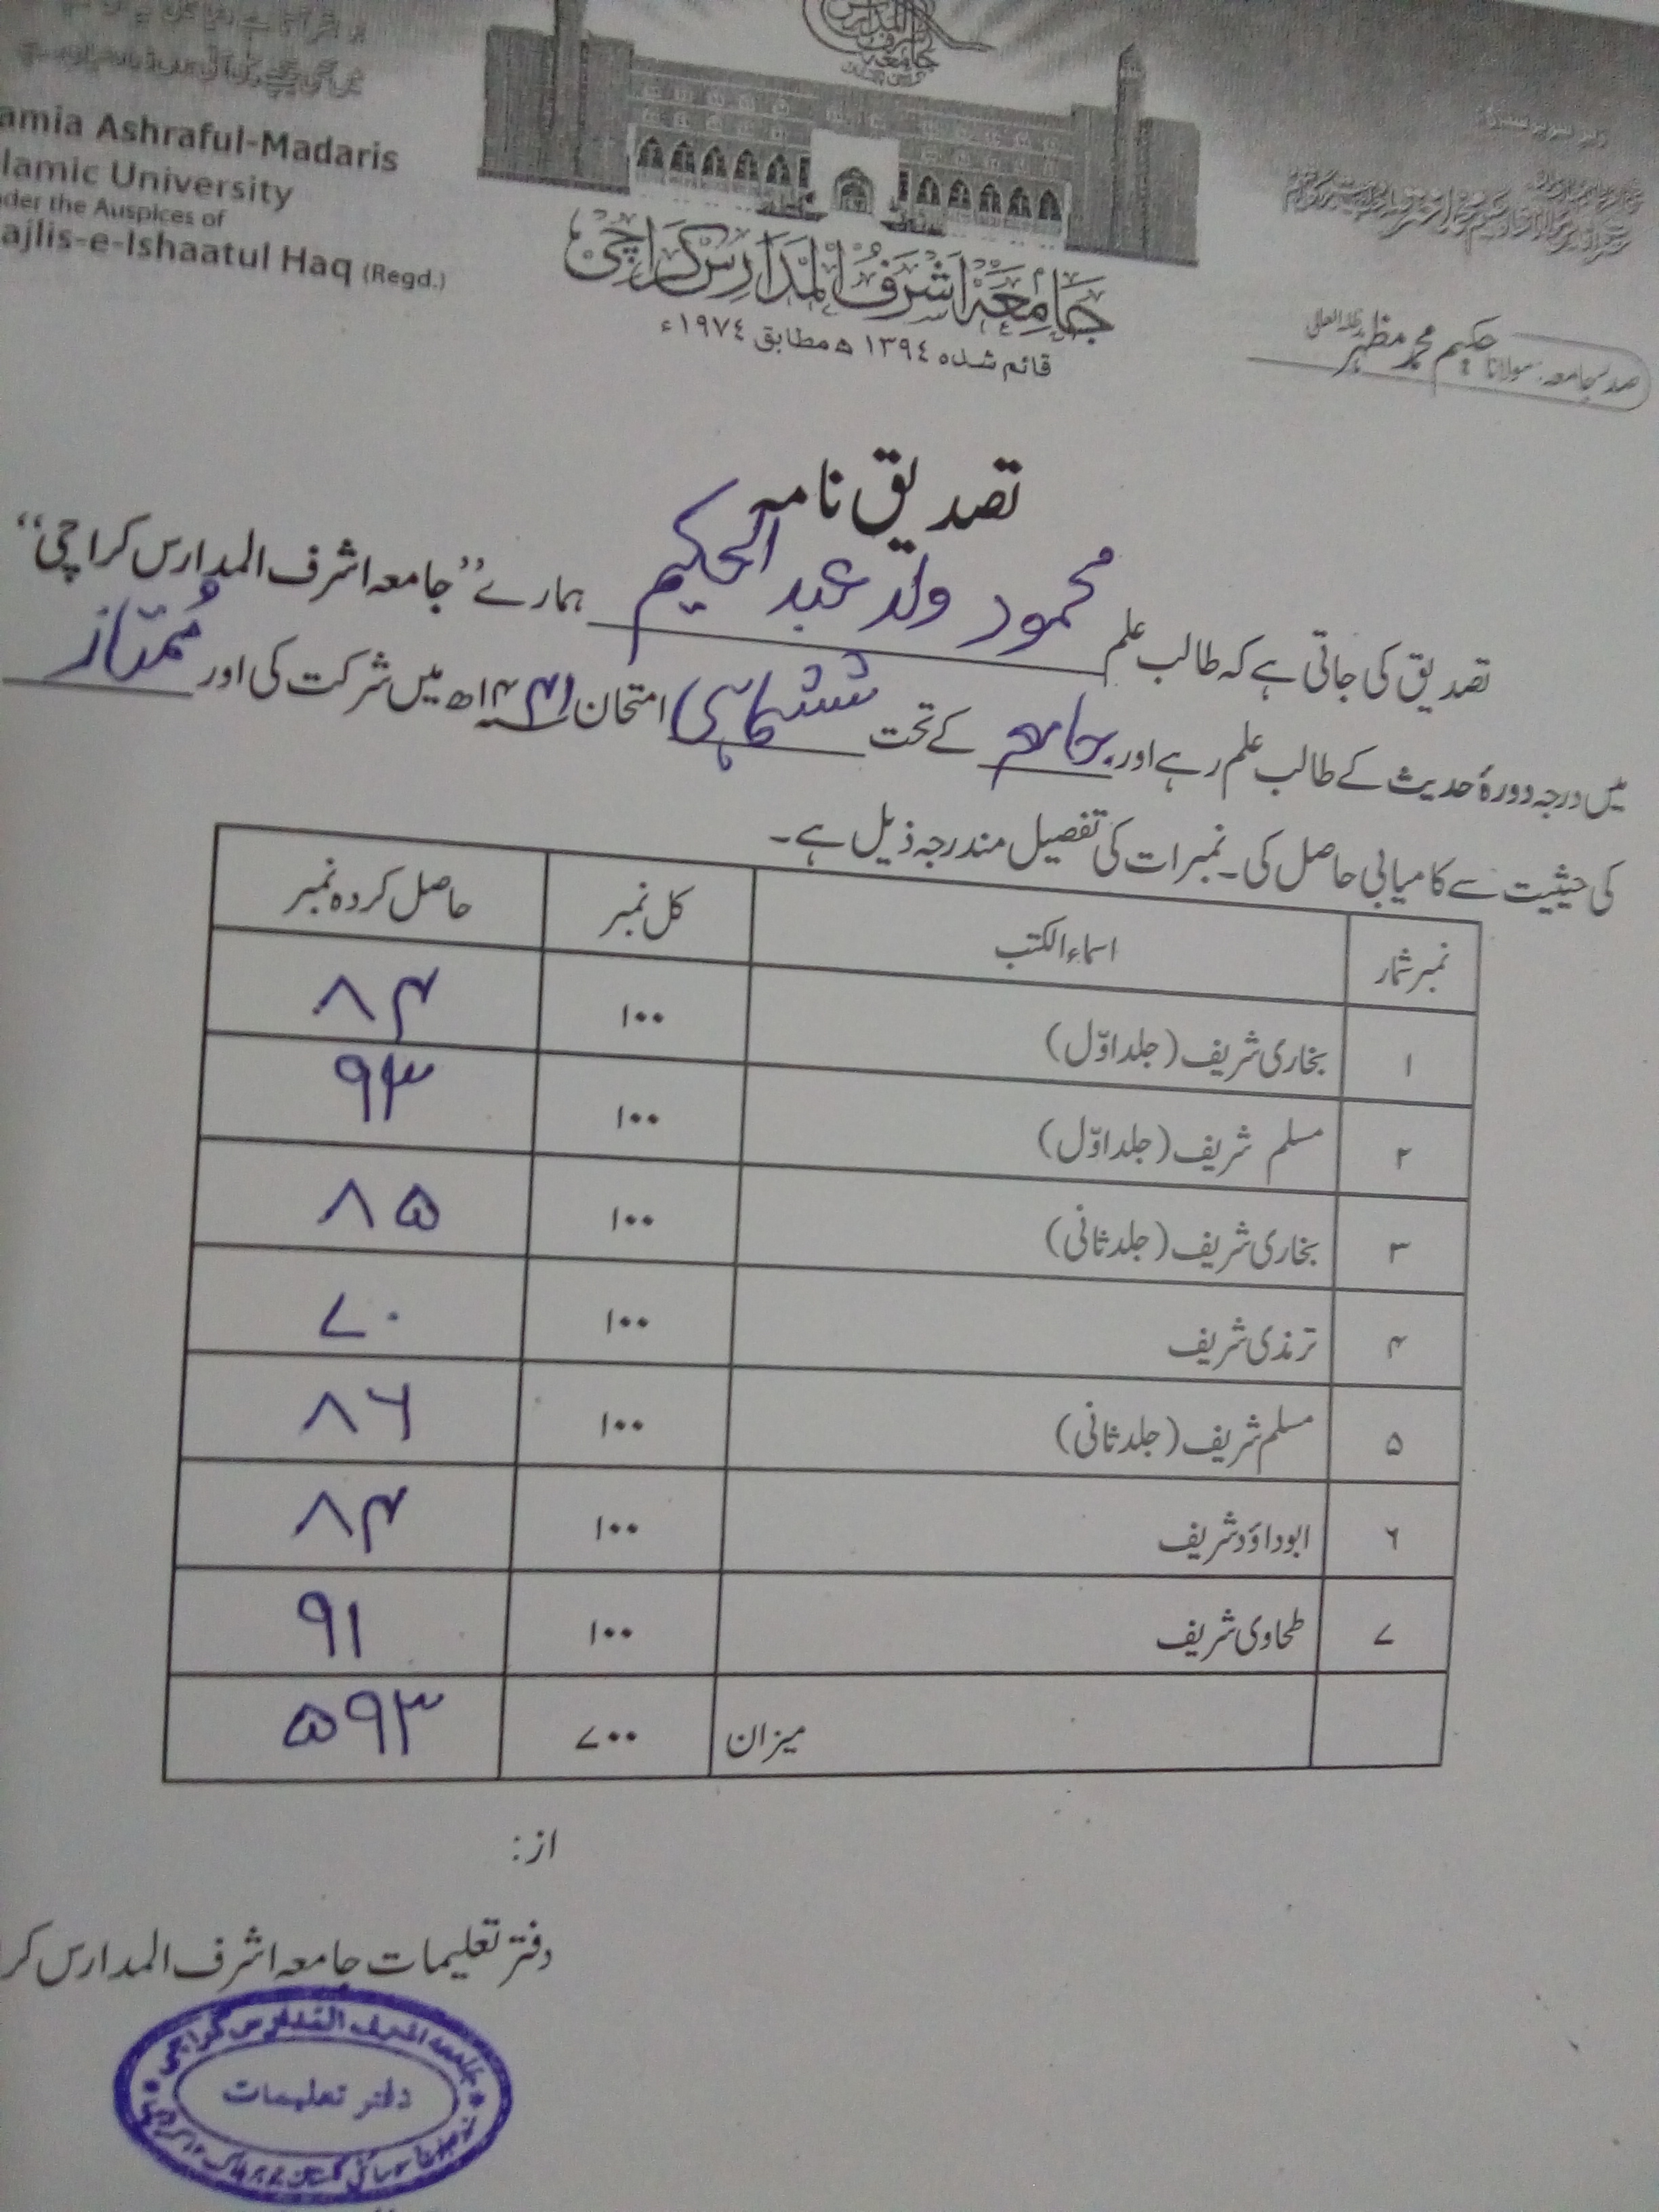 amia Ashraful-Madaris
lamic University
nder the Auspices of
ajlis-e-Ishaatul Haq (Regd.)
جامعہ اشرف المدارس کراچی
قائم شدہ ١٣٩٤ ھ مطابق ١٩٧٤ء
صدر جامعہ: مولانا حکیم محمد مظہر
تصدیق نامہ
تصدیق کی جاتی ہے کہ طالب علم محمود ولد عبد الحکیم ہمارے ”جامعہ اشرف المدارس کراچی“
میں درجہ دورۂ حدیث کے طالب علم رہے اور جامعہ کے تحت ششماہی امتحان ۱۴۴۱ھ میں شرکت کی اور مُمتاز
کی حیثیت سے کامیابی حاصل کی۔ نمبرات کی تفصیل مندرجہ ذیل ہے۔
نمبر شمار اسماء الکتب کل نمبر حاصل کردہ نمبر
۱ بخاری شریف (جلد اوّل) ۱۰۰ ۸۴
۲ مسلم شریف (جلد اوّل) ۱۰۰ ۹۳
۳ بخاری شریف (جلد ثانی) ۱۰۰ ۸۵
۴ ترمذی شریف ۱۰۰ ۷۰
۵ مسلم شریف (جلد ثانی) ۱۰۰ ۸۶
۶ ابوداؤد شریف ۱۰۰ ۸۴
۷ طحاوی شریف ۱۰۰ ۹۱
میزان ۷۰۰ ۵۹۳
از:
دفتر تعلیمات جامعہ اشرف المدارس کر
جامعہ اشرف المدارس کراچی
دفتر تعلیمات